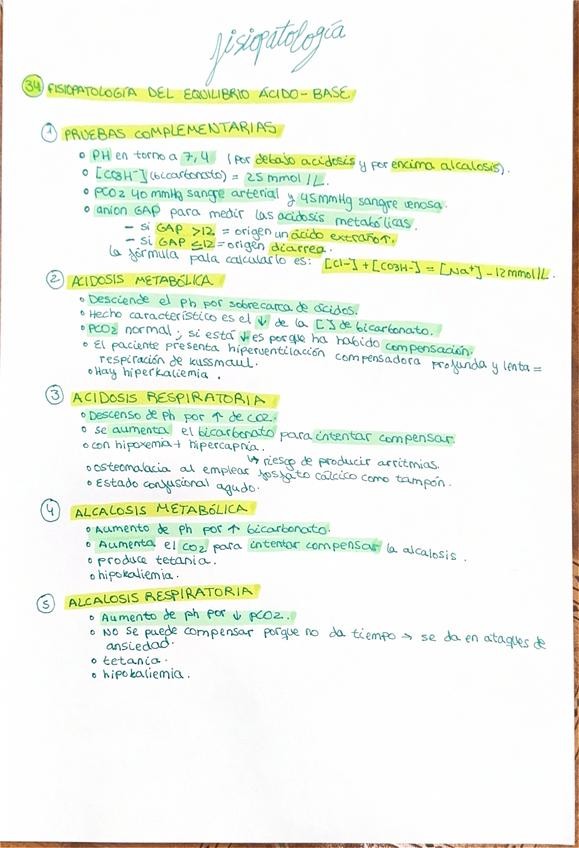 fisiopatología
34 FISIOPATOLOGÍA DEL EQUILIBRIO ÁCIDO-BASE
1 PRUEBAS COMPLEMENTARIAS
• PH en torno a 7,4 (por debajo acidosis y por encima alcalosis).
• [CO3H⁻] (bicarbonato) = 25 mmol/L.
• PCO2 40 mmHg sangre arterial y 45mmHg sangre venosa.
• anion GAP para medir las acidosis metabólicas.
– si GAP >12 = origen un ácido extraño↑.
– si GAP ≤12 = origen diarrea.
la fórmula pala calcularlo es: [Cl-] + [CO3H-] = [Na+] - 12 mmol/L.
2 ACIDOSIS METABÓLICA
• Desciende el Ph por sobrecarga de ácidos.
• Hecho característico es el ↓ de la [ ] de bicarbonato.
• PCO2 normal; si está ↓ es porque ha habido compensación.
• El paciente presenta hiperventilación compensadora profunda y lenta =
respiración de Kussmaul.
• Hay hiperkaliemia.
3 ACIDOSIS RESPIRATORIA
• Descenso de Ph por ↑ de CO2.
• se aumenta el bicarbonato para intentar compensar
• con hipoxemia + hipercapnia.
↳ riesgo de producir arritmias.
• osteomalacia al emplear fosfato cálcico como tampón.
• Estado confusional agudo.
4 ALCALOSIS METABÓLICA
• Aumento de Ph por ↑ bicarbonato.
• Aumenta el CO2 para intentar compensar la alcalosis.
• produce tetania.
• hipokaliemia.
5 ALCALOSIS RESPIRATORIA
• Aumento de ph por ↓ pCO2.
• No se puede compensar porque no da tiempo → se da en ataques de
ansiedad.
• tetania.
• hipokaliemia.